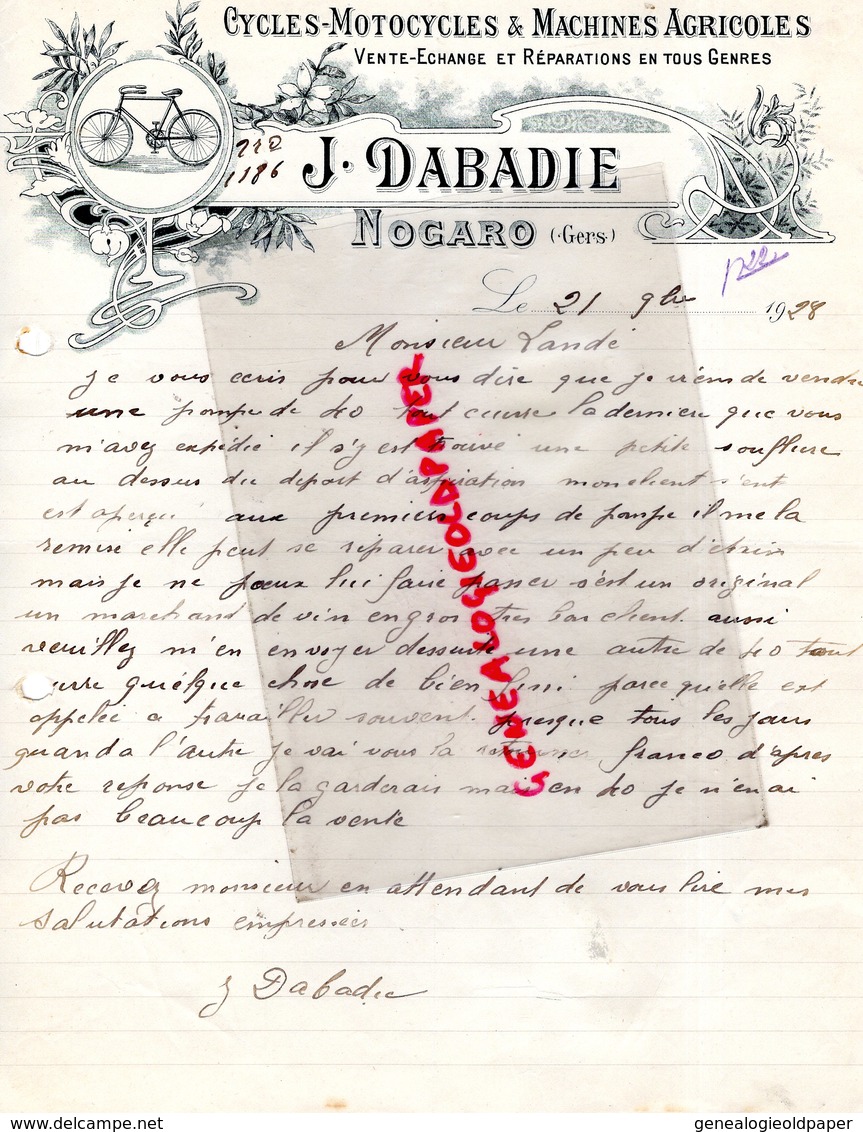 CYCLES-MOTOCYCLES & MACHINES AGRICOLES
VENTE-ECHANGE ET RÉPARATIONS EN TOUS GENRES
220
1186
J. DABADIE
NOGARO (Gers)
Le 21 9bre 1928
Monsieur Landé
je vous ecris pour vous dire que je viens de vendre
une pompe de 40 tout cuivre la derniere que vous
m'avez expédié il s'y est trouvé une petite soufflure
au dessus du depart d'aspiration mon client s'ent
est aperçu aux premiers coups de pompe il me la
remise elle peut se réparer avec un peu d'étain
mais je ne peux lui faire passer s'est un original
un marchand de vin en gros tres bon client aussi
veuillez m'en envoyer dessuite une autre de 40 tout
cuivre quelque chose de bien fini parce qu'elle est
appelée a travailler souvent presque tous les jours
quand a l'autre je vai vous la retourner franco d'apres
votre reponse je la garderais mais en 40 je n'en ai
pas beaucoup la vente
Recevez monsieur en attendant de vous lire mes
salutations empressées
J Dabadie
GENEALOGIEOLDPAPER
delcampe.net
genealogieoldpaper